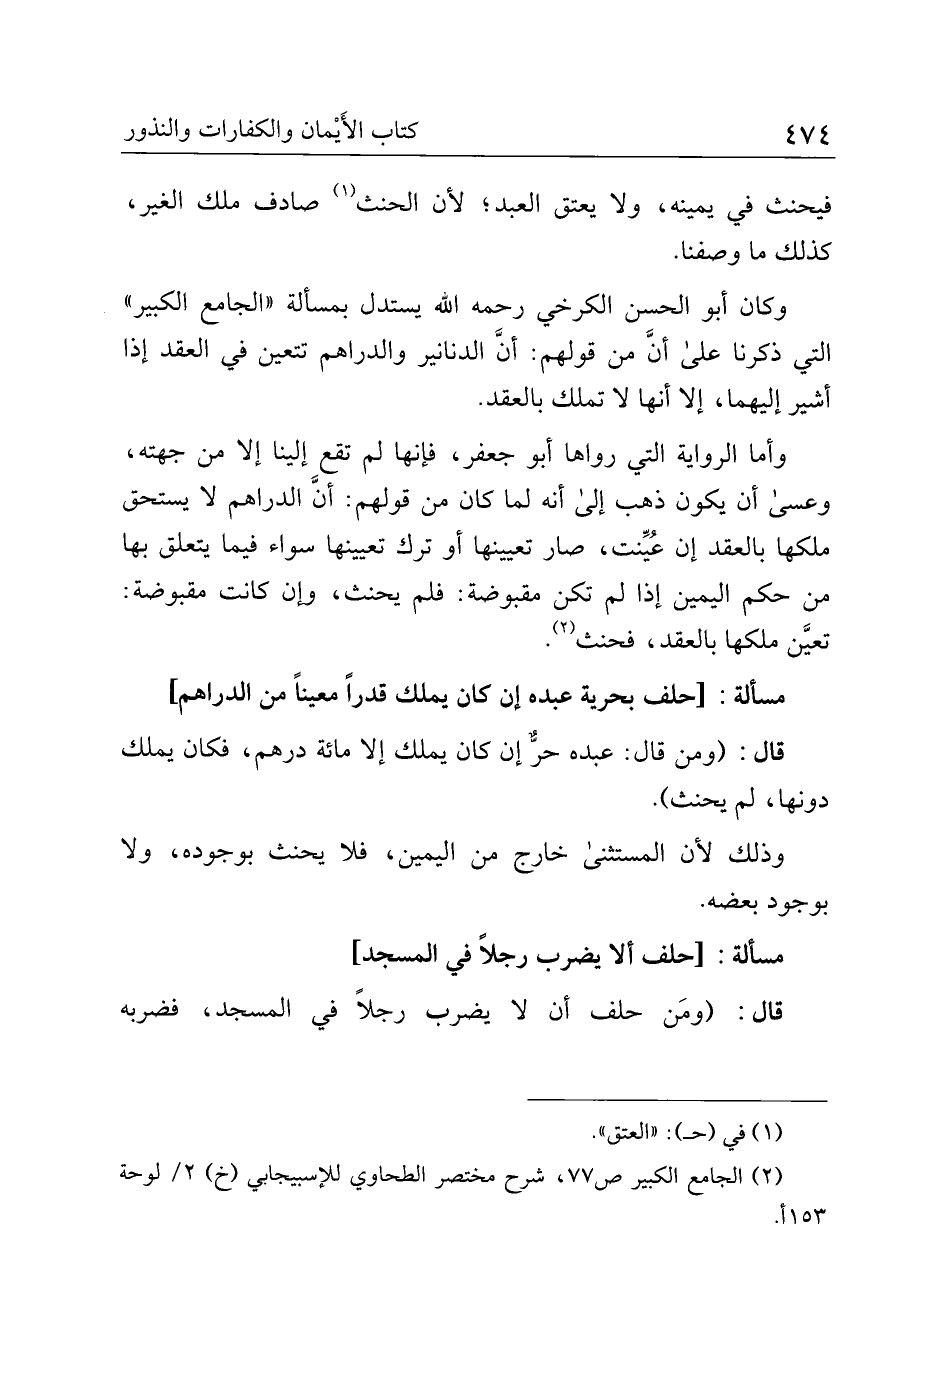 ٤٧٤ كتاب الأَيْمان والكفارات والنذور
فيحنث في يمينه، ولا يعتق العبد؛ لأن الحنث(١) صادف ملك الغير،
كذلك ما وصفنا.
وكان أبو الحسن الكرخي رحمه الله يستدل بمسألة «الجامع الكبير»
التي ذكرنا علىٰ أنَّ من قولهم: أنَّ الدنانير والدراهم تتعين في العقد إذا
أشير إليهما، إلا أنها لا تملك بالعقد.
وأما الرواية التي رواها أبو جعفر، فإنها لم تقع إلينا إلا من جهته،
وعسىٰ أن يكون ذهب إلىٰ أنه لما كان من قولهم: أنَّ الدراهم لا يستحق
ملكها بالعقد إن عُيِّنت، صار تعيينها أو ترك تعيينها سواء فيما يتعلق بها
من حكم اليمين إذا لم تكن مقبوضة: فلم يحنث، وإن كانت مقبوضة:
تعيَّن ملكها بالعقد، فحنث(٢).
مسألة : [حلف بحرية عبده إن كان يملك قدراً معيناً من الدراهم]
قال : (ومن قال: عبده حرٌّ إن كان يملك إلا مائة درهم، فكان يملك
دونها، لم يحنث).
وذلك لأن المستثنىٰ خارج من اليمين، فلا يحنث بوجوده، ولا
بوجود بعضه.
مسألة : [حلف ألا يضرب رجلاً في المسجد]
قال : (ومَن حلف أن لا يضرب رجلاً في المسجد، فضربه
(١) في (حـ): «العتق».
(٢) الجامع الكبير ص٧٧، شرح مختصر الطحاوي للإسبيجابي (خ) ٢/ لوحة
١٥٣أ.